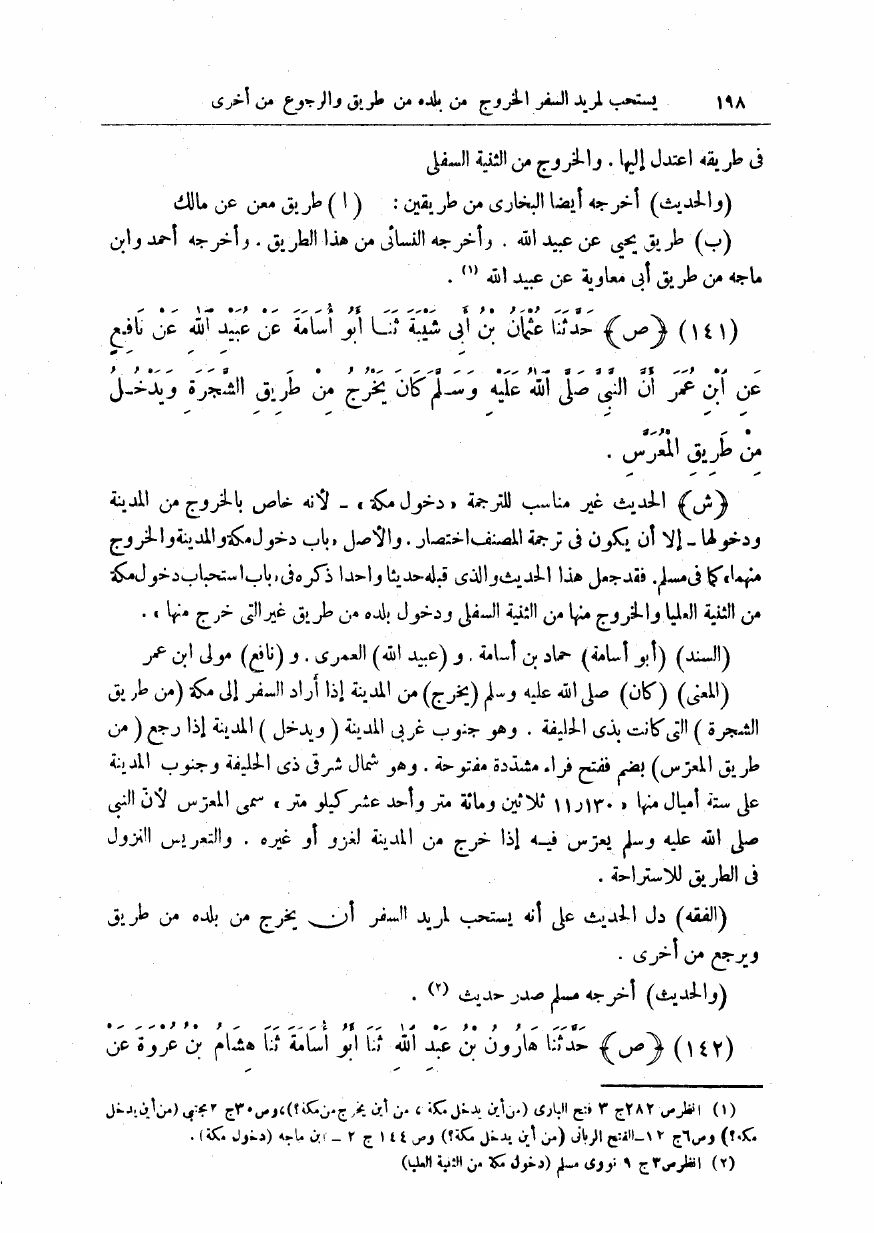 ١٩٨ يستحب لمريد السفر الخروج من بلده من طريق والرجوع من أخرى
فى طريقه اعتدل إليها. والخروج من الثنية السفلى
(والحديث) أخرجه أيضا البخارى من طريقين: (ا) طريق معن عن مالك
(ب) طريق يحيى عن عبيد الله . وأخرجه النسائى من هذا الطريق. وأخرجه أحمد وابن
ماجه من طريق أبى معاوية عن عبيد الله (١) .
(١٤١) ﴿ص﴾ حَدَّثَنَا عُثْمَانُ بْنُ أَبِى شَيْبَةَ ثَنَا أَبُو أُسَامَةَ عَنْ عُبَيْدِ اللهِ عَنْ نَافِعٍ
عَنِ ابْنِ عُمَرَ أَنَّ النَّبِىَّ صَلَّى اللهُ عَلَيْهِ وَسَلَّمَ كَانَ يَخْرُجُ مِنْ طَرِيقِ الشَّجَرَةِ وَيَدْخُلُ
مِنْ طَرِيقِ الْمُعَرَّسِ .
﴿ش﴾ الحديث غير مناسب للترجمة «دخول مكة» - لأنه خاص بالخروج من المدينة
ودخولها - إلا أن يكون فى ترجمة المصنف اختصار. والأصل «باب دخول مكة والمدينة والخروج
منهما» كما فى مسلم. فقد جعل هذا الحديث والذى قبله حديثا واحدا ذكره فى «باب استحباب دخول مكة
من الثنية العليا والخروج منها من الثنية السفلى ودخول بلده من طريق غير التى خرج منها» .
(السند) (أبو أسامة) حماد بن أسامة. و (عبيد الله) العمرى. و (نافع) مولى ابن عمر
(المعنى) (كان) صلى الله عليه وسلم (يخرج) من المدينة إذا أراد السفر إلى مكة (من طريق
الشجرة) التى كانت بذى الحليفة . وهو جنوب غربى المدينة (ويدخل) المدينة إذا رجع (من
طريق المعرّس) بضم ففتح فراء مشدّدة مفتوحة. وهو شمال شرقى ذى الحليفة وجنوب المدينة
على ستة أميال منها «١١٫١٣٠ ثلاثين ومائة متر وأحد عشر كيلو متر» سمى المعرّس لأنّ النبى
صلى الله عليه وسلم يعرّس فيه إذا خرج من المدينة لغزو أو غيره . والتعريس النزول
فى الطريق للاستراحة .
(الفقه) دل الحديث على أنه يستحب لمريد السفر أن يخرج من بلده من طريق
ويرجع من أخرى .
(والحديث) أخرجه مسلم صدر حديث (٢) .
(١٤٢) ﴿ص﴾ حَدَّثَنَا هَارُونُ بْنُ عَبْدِ اللهِ ثَنَا أَبُو أُسَامَةَ ثَنَا هِشَامُ بْنُ عُرْوَةَ عَنْ
(١) انظر ص ٢٨٢ ج ٣ فتح البارى (من أين يدخل مكة ، من أين يخرج من مكة؟)، وص ٣٠ ج ٢ مجتبى (من أين يدخل
مكة؟) وص ٦ ج ١٢ - الفتح الربانى (من أين يدخل مكة؟) وص ١٤٤ ج ٢ - ابن ماجه (دخول مكة) .
(٢) انظر ص ٣ ج ٩ نووى مسلم (دخول مكة من الثنية العليا)